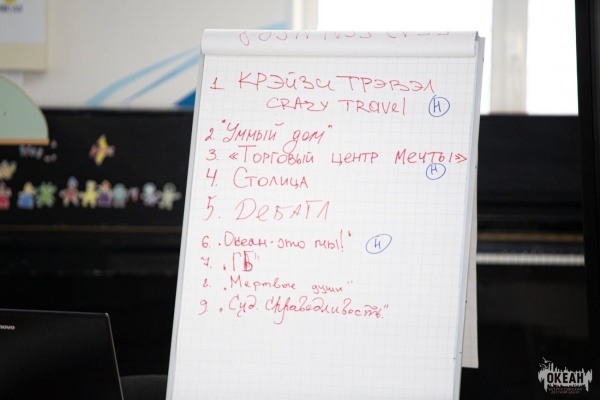 1 КРЭЙЗИ ТРЭВЭЛ
CRAZY TRAVEL Н
2. "Умный дом"
3. «Торговый центр мечты»
Н
4. Столица
5. ДЕБАТЛ
6. „Океан-это мы!" Н
7. „ГБ"
8. „Мертвые души"
9. „Суд. Справедливость."
lenovo
ОКЕАН